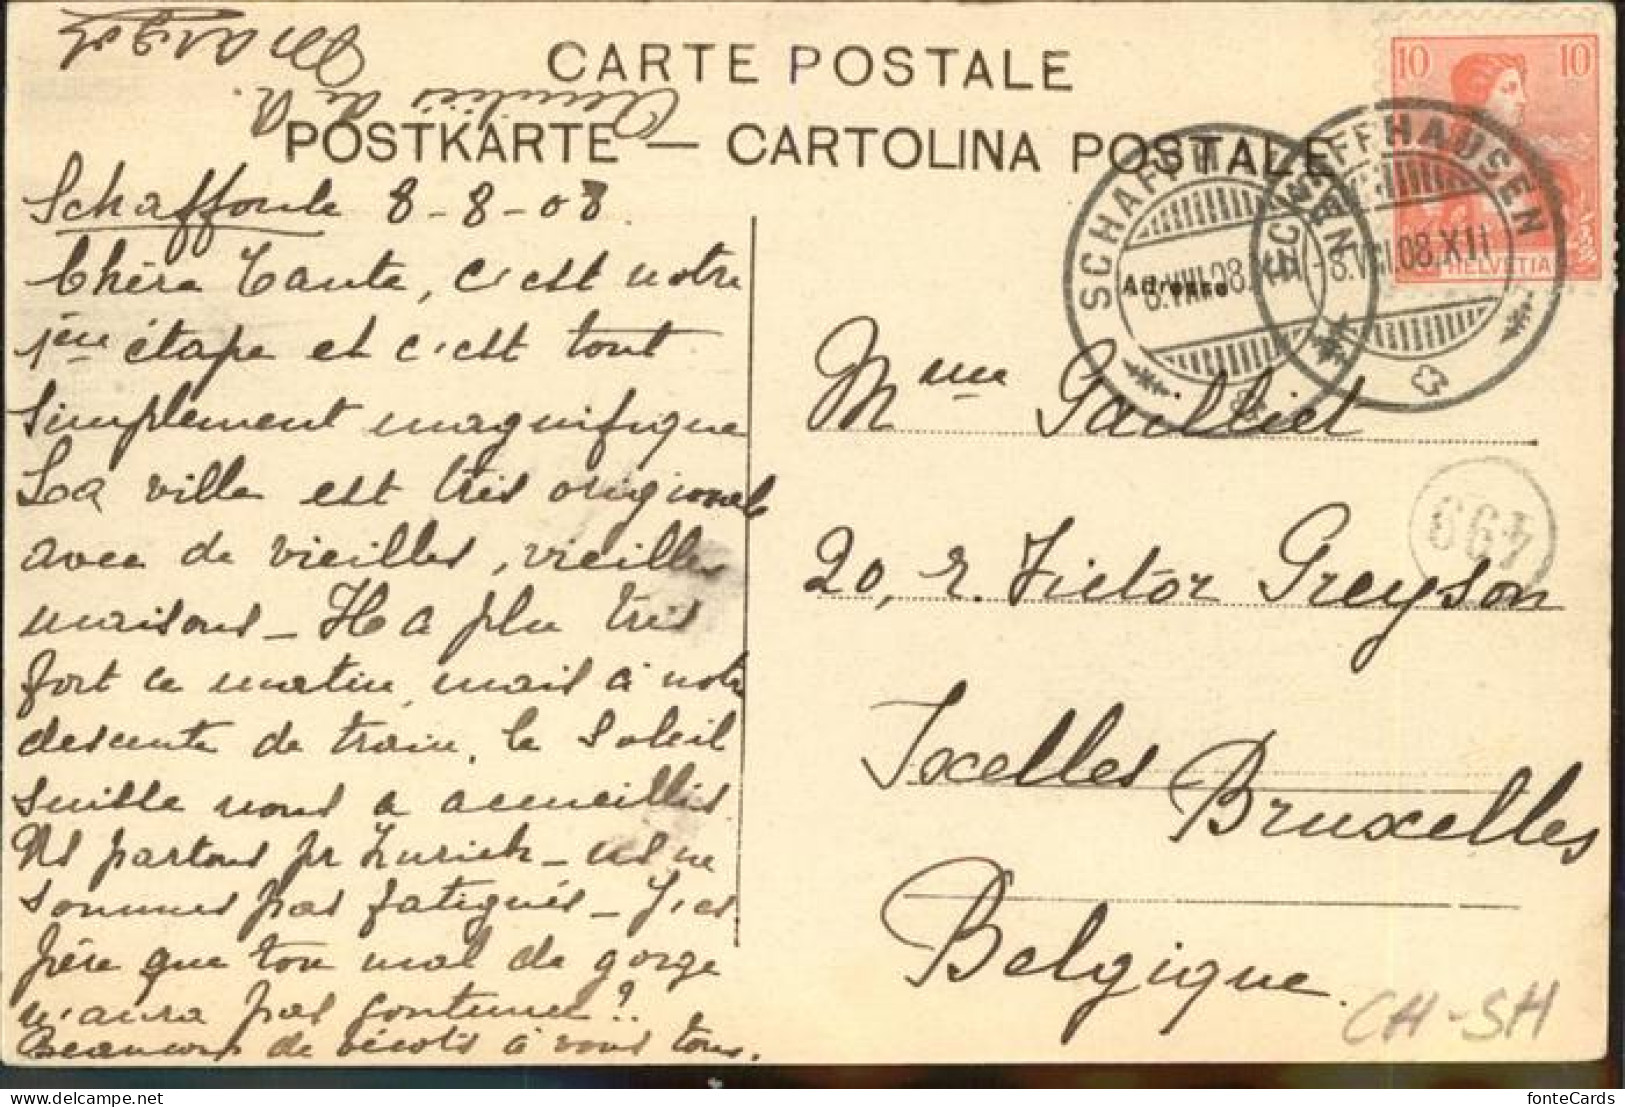 CARTE POSTALE
POSTKARTE — CARTOLINA POSTALE
Schaffouse 8-8-08
Chère Tante, c'est notre
1ère étape et c'est tout
simplement magnifique
La ville est très original
avec de vieilles, vieilles
maisons - Il a plu très
fort ce matin, mais à notre
descente de train, le soleil
suisse nous a accueillis
Ns partons pr Zurich - ns ne
sommes pas fatigués - J'es-
père que ton mal de gorge
n'aura pas continué?
de à vous tous.
Amitiés de
SCHAFFHAUSEN
8.VIII.08.XII
SCHAFFHAUSEN
-8.VIII.08.XII
10 10
HELVETIA
Adresse
Mme Gailliet
499
20, r. Victor Greyson
Ixelles
Bruxelles
Belgique.
CH-SH
delcampe.net
fonteCards